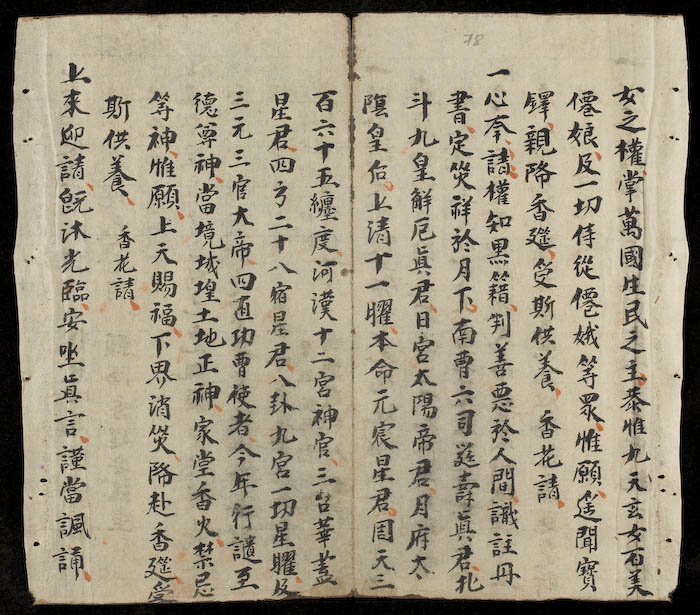 78
女之權掌萬國生民之主恭惟九天玄女百美
僊娘及一切侍從僊娥等眾惟願遙聞寶
鐸親降香筵受斯供養 香花請
一心奉請權知黑籍判善惡於人間識註丹
書定災祥於月下南曹六司延壽眞君北
斗九皇解厄眞君日宮太陽帝君月府太
陰皇后上清十一曜本命元宸星君周天三
百六十五纏度河漢十二宮神官三台華蓋
星君四方二十八宿星君八卦九宮一切星曜及
三元三官大帝四直功曹使者今年行譴至
德尊神當境城隍土地正神家堂香火禁忌
等神惟願上天賜福下界消災降赴香筵受
斯供養 香花請
上來迎請旣沐光臨安坐眞言謹當諷誦